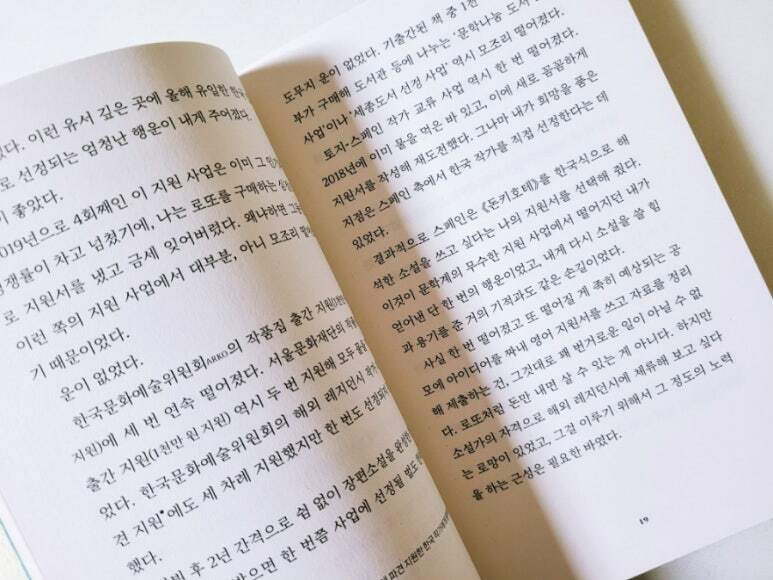 있다. 이런 유서 깊은 곳에 올해 유일한 한국
로 선정되는 엄청난 행운이 내게 주어졌다.
이 좋았다.
2019년으로 4회째인 이 지원 사업은 이미 그
쟁률이 차고 넘쳤기에, 나는 로또를 구매하는
로 지원서를 냈고 금세 잊어버렸다. 왜냐하면 그
이런 쪽의 지원 사업에서 대부분, 아니 모조리
기 때문이었다.
운이 없었다.
한국문화예술위원회ARKO의 작품집 출간 지원
지원)에 세 번 연속 떨어졌다. 서울문화재단의
출간 지원(1천만 원 지원) 역시 두 번 지원해 모두
었다. 한국문화예술위원회의 해외 레지던시
견 지원*에도 세 차례 지원했지만 한 번도
했다.
후 2년 간격으로 쉼 없이 장편소설을
으면 한 번쯤 사업에 선정될 법도
파견 지원한 한국
도무지 운이 없었다. 기출간된 책 중 1천
부가 구매해 도서관 등에 나누는 '문학나눔 도서
사업'이나 '세종도서 선정 사업' 역시 모조리 떨어졌다.
토지·스페인 작가 교류 사업 역시 한 번 떨어졌다.
2018년에 이미 물을 먹은 바 있고, 이에 새로 꼼꼼하게
지원서를 작성해 재도전했다. 그나마 내가 희망을 품은
지점은 스페인 측에서 한국 작가를 직접 선정한다는 데
있었다.
결과적으로 스페인은 《돈키호테》를 한국식으로 해
석한 소설을 쓰고 싶다는 나의 지원서를 선택해 줬다.
이것이 문학계의 무수한 지원 사업에서 떨어지던 내가
얻어낸 단 한 번의 행운이었고, 내게 다시 소설을 쓸 힘
과 용기를 준 거의 기적과도 같은 손길이었다.
사실 한 번 떨어졌고 또 떨어질 게 족히 예상되는 공
모에 아이디어를 짜내 영어 지원서를 쓰고 자료를 정리
해 제출하는 건, 그것대로 꽤 번거로운 일이 아닐 수 없
다. 로또처럼 돈만 내면 살 수 있는 게 아니다. 하지만
소설가의 자격으로 해외 레지던시에 체류해 보고 싶다
는 로망이 있었고, 그걸 이루기 위해서 그 정도의 노력
을 하는 근성은 필요한 바였다.
19